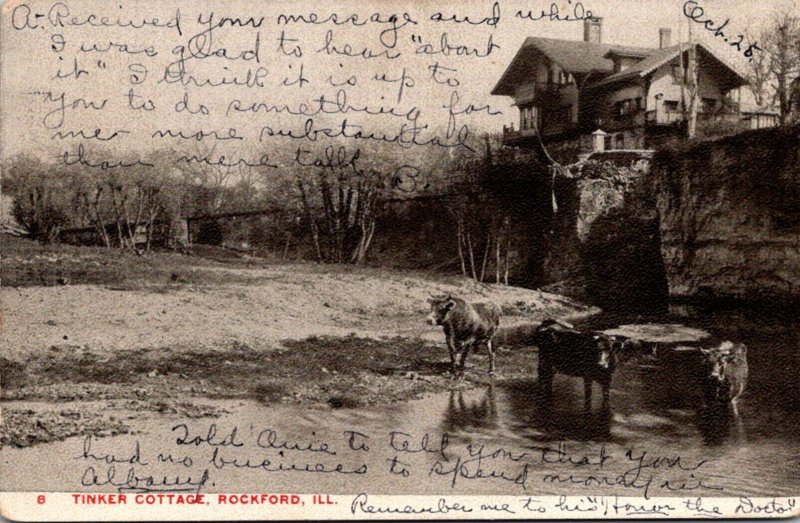 A- Received your message and while
Oct. 25.
I was glad to hear "about
it" I think it is up to
you to do something for
me more substantial
than mere talk.
B.
Told Ouie to tell you that you
had no business to spend money in
Albany.
8 TINKER COTTAGE, ROCKFORD, ILL.
Remember me to his "Honor the Doctor"